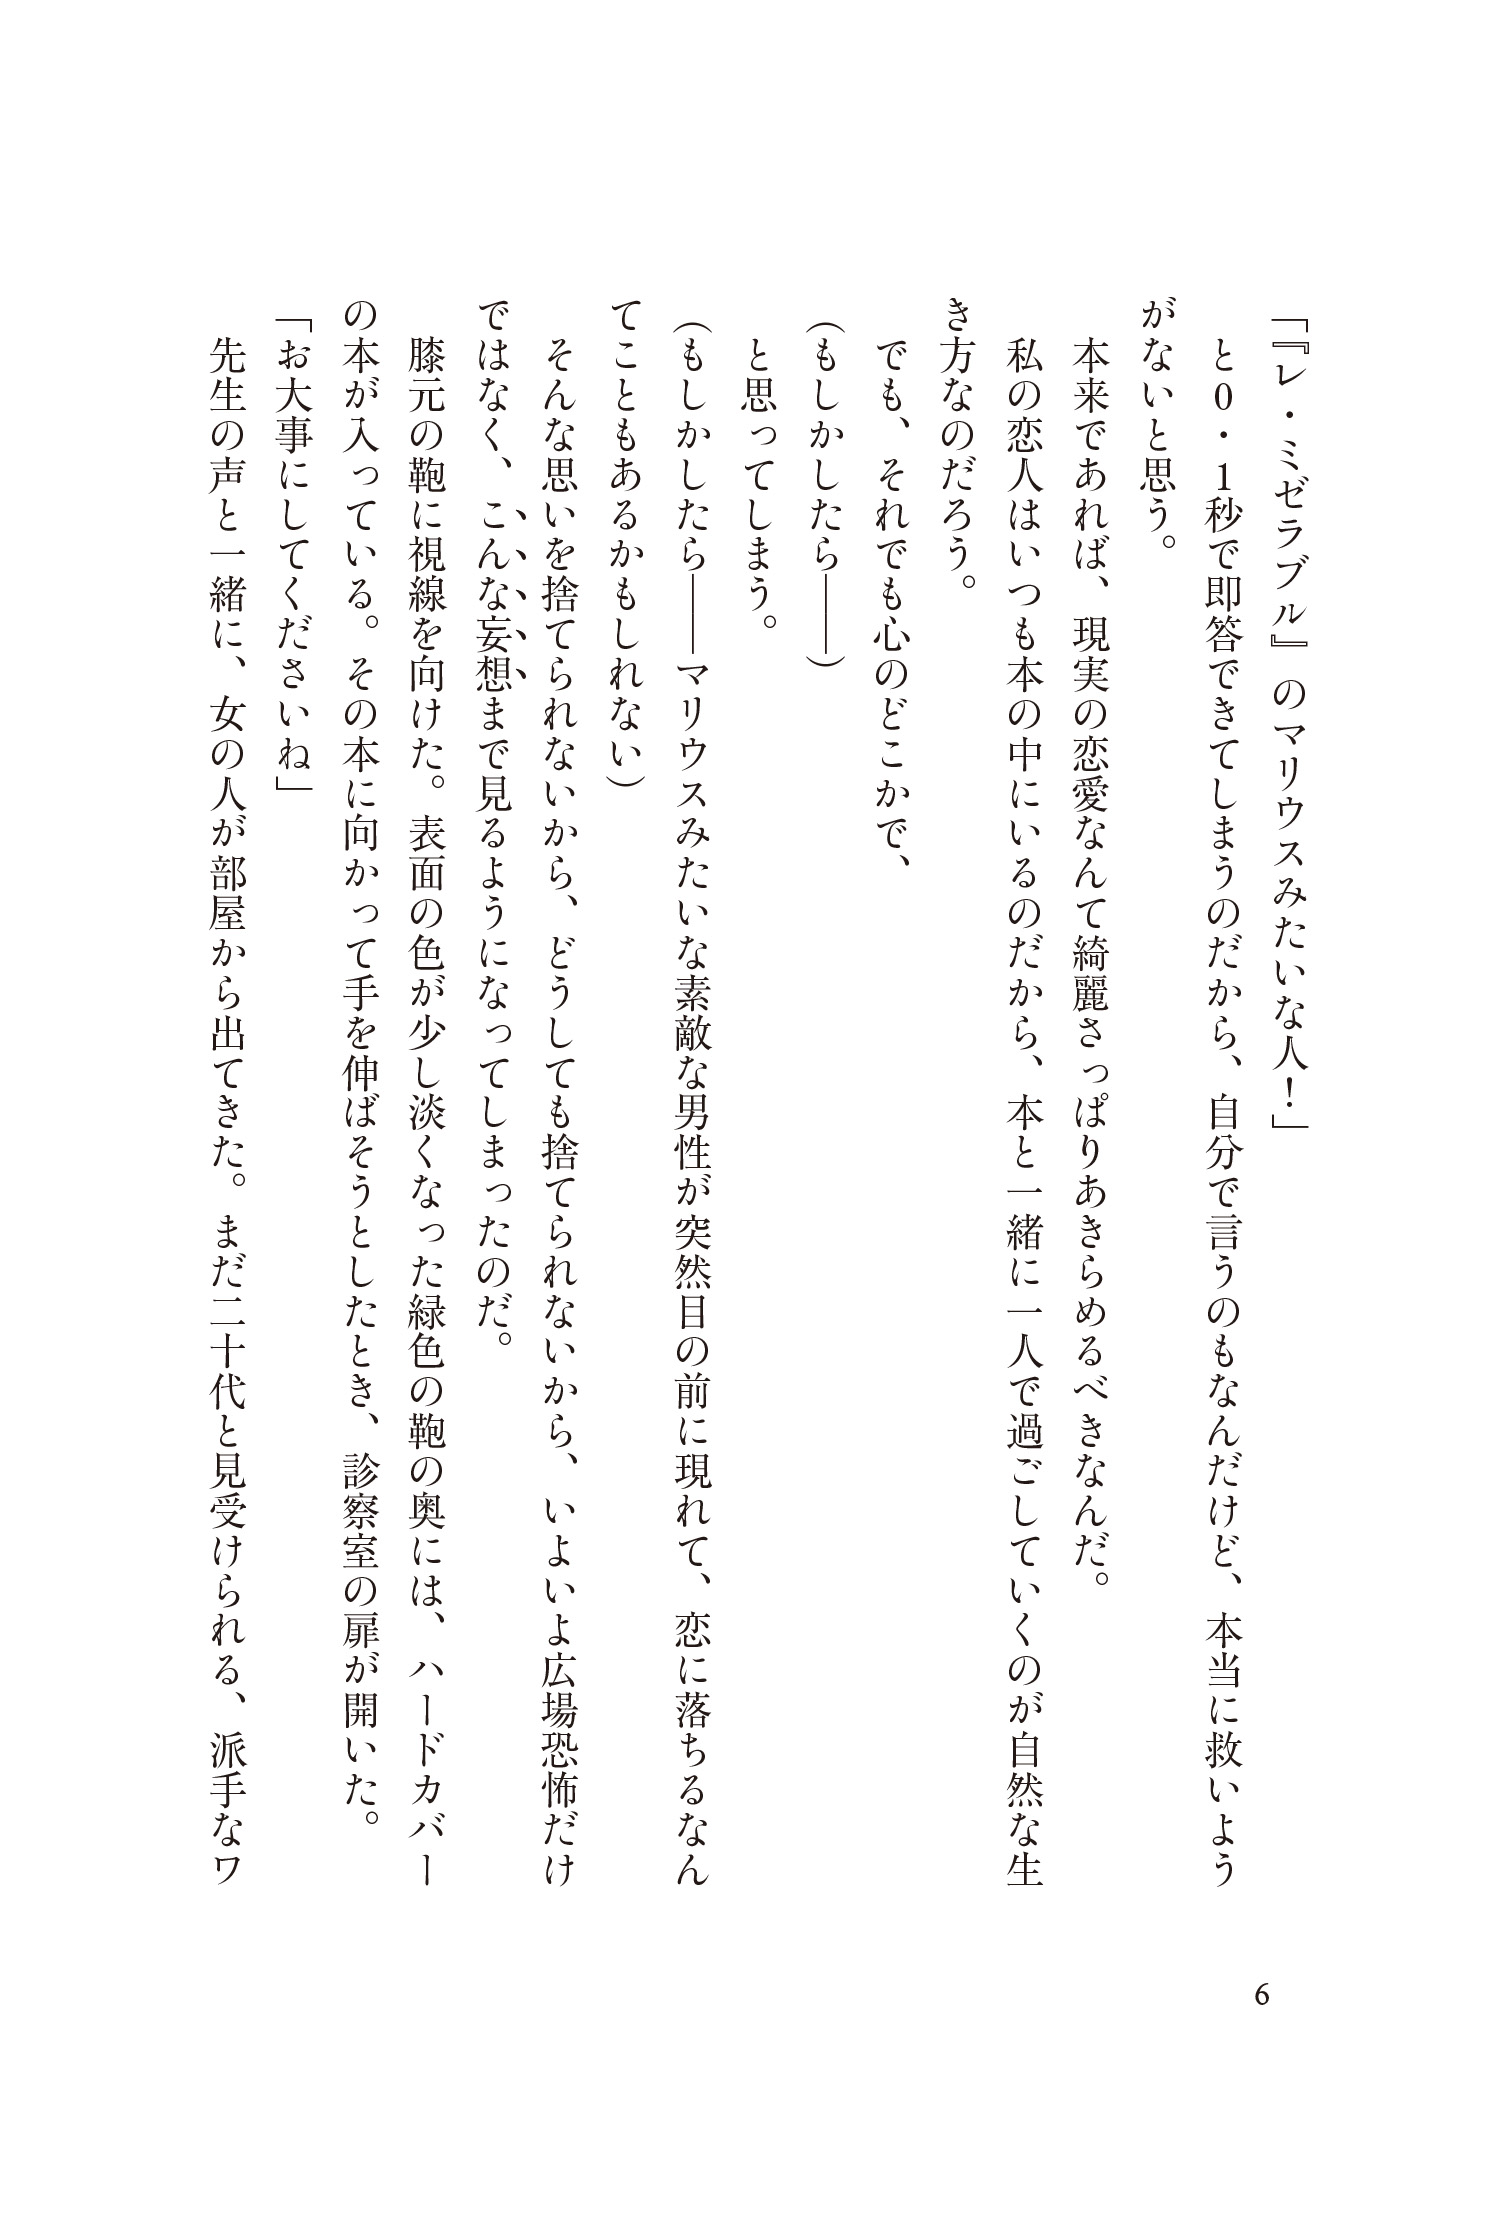 「『レ・ミゼラブル』のマリウスみたいな人！」
　と0・1秒で即答できてしまうのだから、自分で言うのもなんだけど、本当に救いよう
がないと思う。
　本来であれば、現実の恋愛なんて綺麗さっぱりあきらめるべきなんだ。
　私の恋人はいつも本の中にいるのだから、本と一緒に一人で過ごしていくのが自然な生
き方なのだろう。
　でも、それでも心のどこかで、
（もしかしたら――）
　と思ってしまう。
（もしかしたら――マリウスみたいな素敵な男性が突然目の前に現れて、恋に落ちるなん
てこともあるかもしれない）
　そんな思いを捨てられないから、どうしても捨てられないから、いよいよ広場恐怖だけ
ではなく、こんな妄想まで見るようになってしまったのだ。
　膝元の鞄に視線を向けた。表面の色が少し淡くなった緑色の鞄の奥には、ハードカバー
の本が入っている。その本に向かって手を伸ばそうとしたとき、診察室の扉が開いた。
「お大事にしてくださいね」
　先生の声と一緒に、女の人が部屋から出てきた。まだ二十代と見受けられる、派手なワ
6